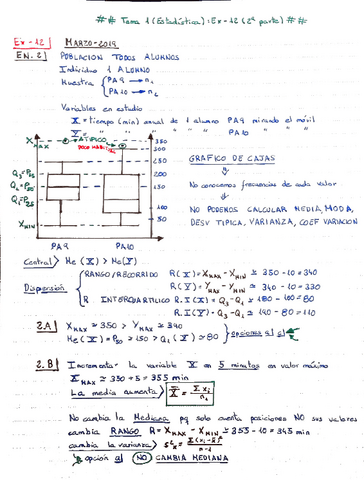 ## Tema 1 (Estadística): Ex-12 (2ª parte) ##
Ex-12 MARZO-2019
EN. 2 POBLACION TODOS ALUMNOS
Individuo 1 ALUMNO
Muestra PA9 → n₁
PA10 → n₂
Variables en estudio
X = tiempo (min) anual de 1 alumno PA9 mirando el móvil
Y = " " " " PA10 " "
X MAX
ATIPICO
350
300
250
200
150
100
50
Q₃=P₇₅
Q₂=P₅₀
Q₁=P₂₅
X MIN
PA9 PA10
GRAFICO DE CAJAS
No conocemos frecuencias de cada valor
NO PODEMOS CALCULAR MEDIA, MODA,
DESV TIPICA, VARIANZA, COEF VARIACION
Central > Me(X) > Me(Y)
Dispersión
RANGO/RECORRIDO R(X) = X MAX - X MIN ≃ 350 - 10 = 340
R(Y) = Y MAX - Y MIN ≃ 340 - 10 = 330
R. INTERCUARTILICO R.I(X) = Q₃ - Q₁ ≃ 180 - 100 = 80
R.I(Y) = Q₃ - Q₁ ≃ 190 - 80 = 110
2.A) X MAX ≃ 350 > Y MAX ≃ 340
Me(X) = P₅₀ > 150 > Q₁(Y) ≃ 80 opciones a) c)
2.B) Incrementa la variable X en 5 minutos en valor máximo
X MAX ≃ 350 + 5 = 355 min
La media aumenta X̄ = Σxᵢ/n₁
No cambia la Mediana pq solo cuenta posiciones NO sus valores
cambia RANGO R = X MAX - X MIN ≃ 355 - 10 = 345 min
cambia la varianza S²x = Σ(xᵢ-x̄)²/n-1
opción a) NO CAMBIA MEDIANA